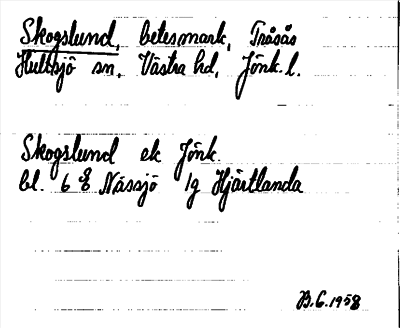 Skogslund, betesmark, Träsås
Hultsjö sn, Västra hd, Jönk. l.
Skogslund ek Jönk.
bl. 6 8 Nässjö 1g Hjärtlanda
B.G. 1958